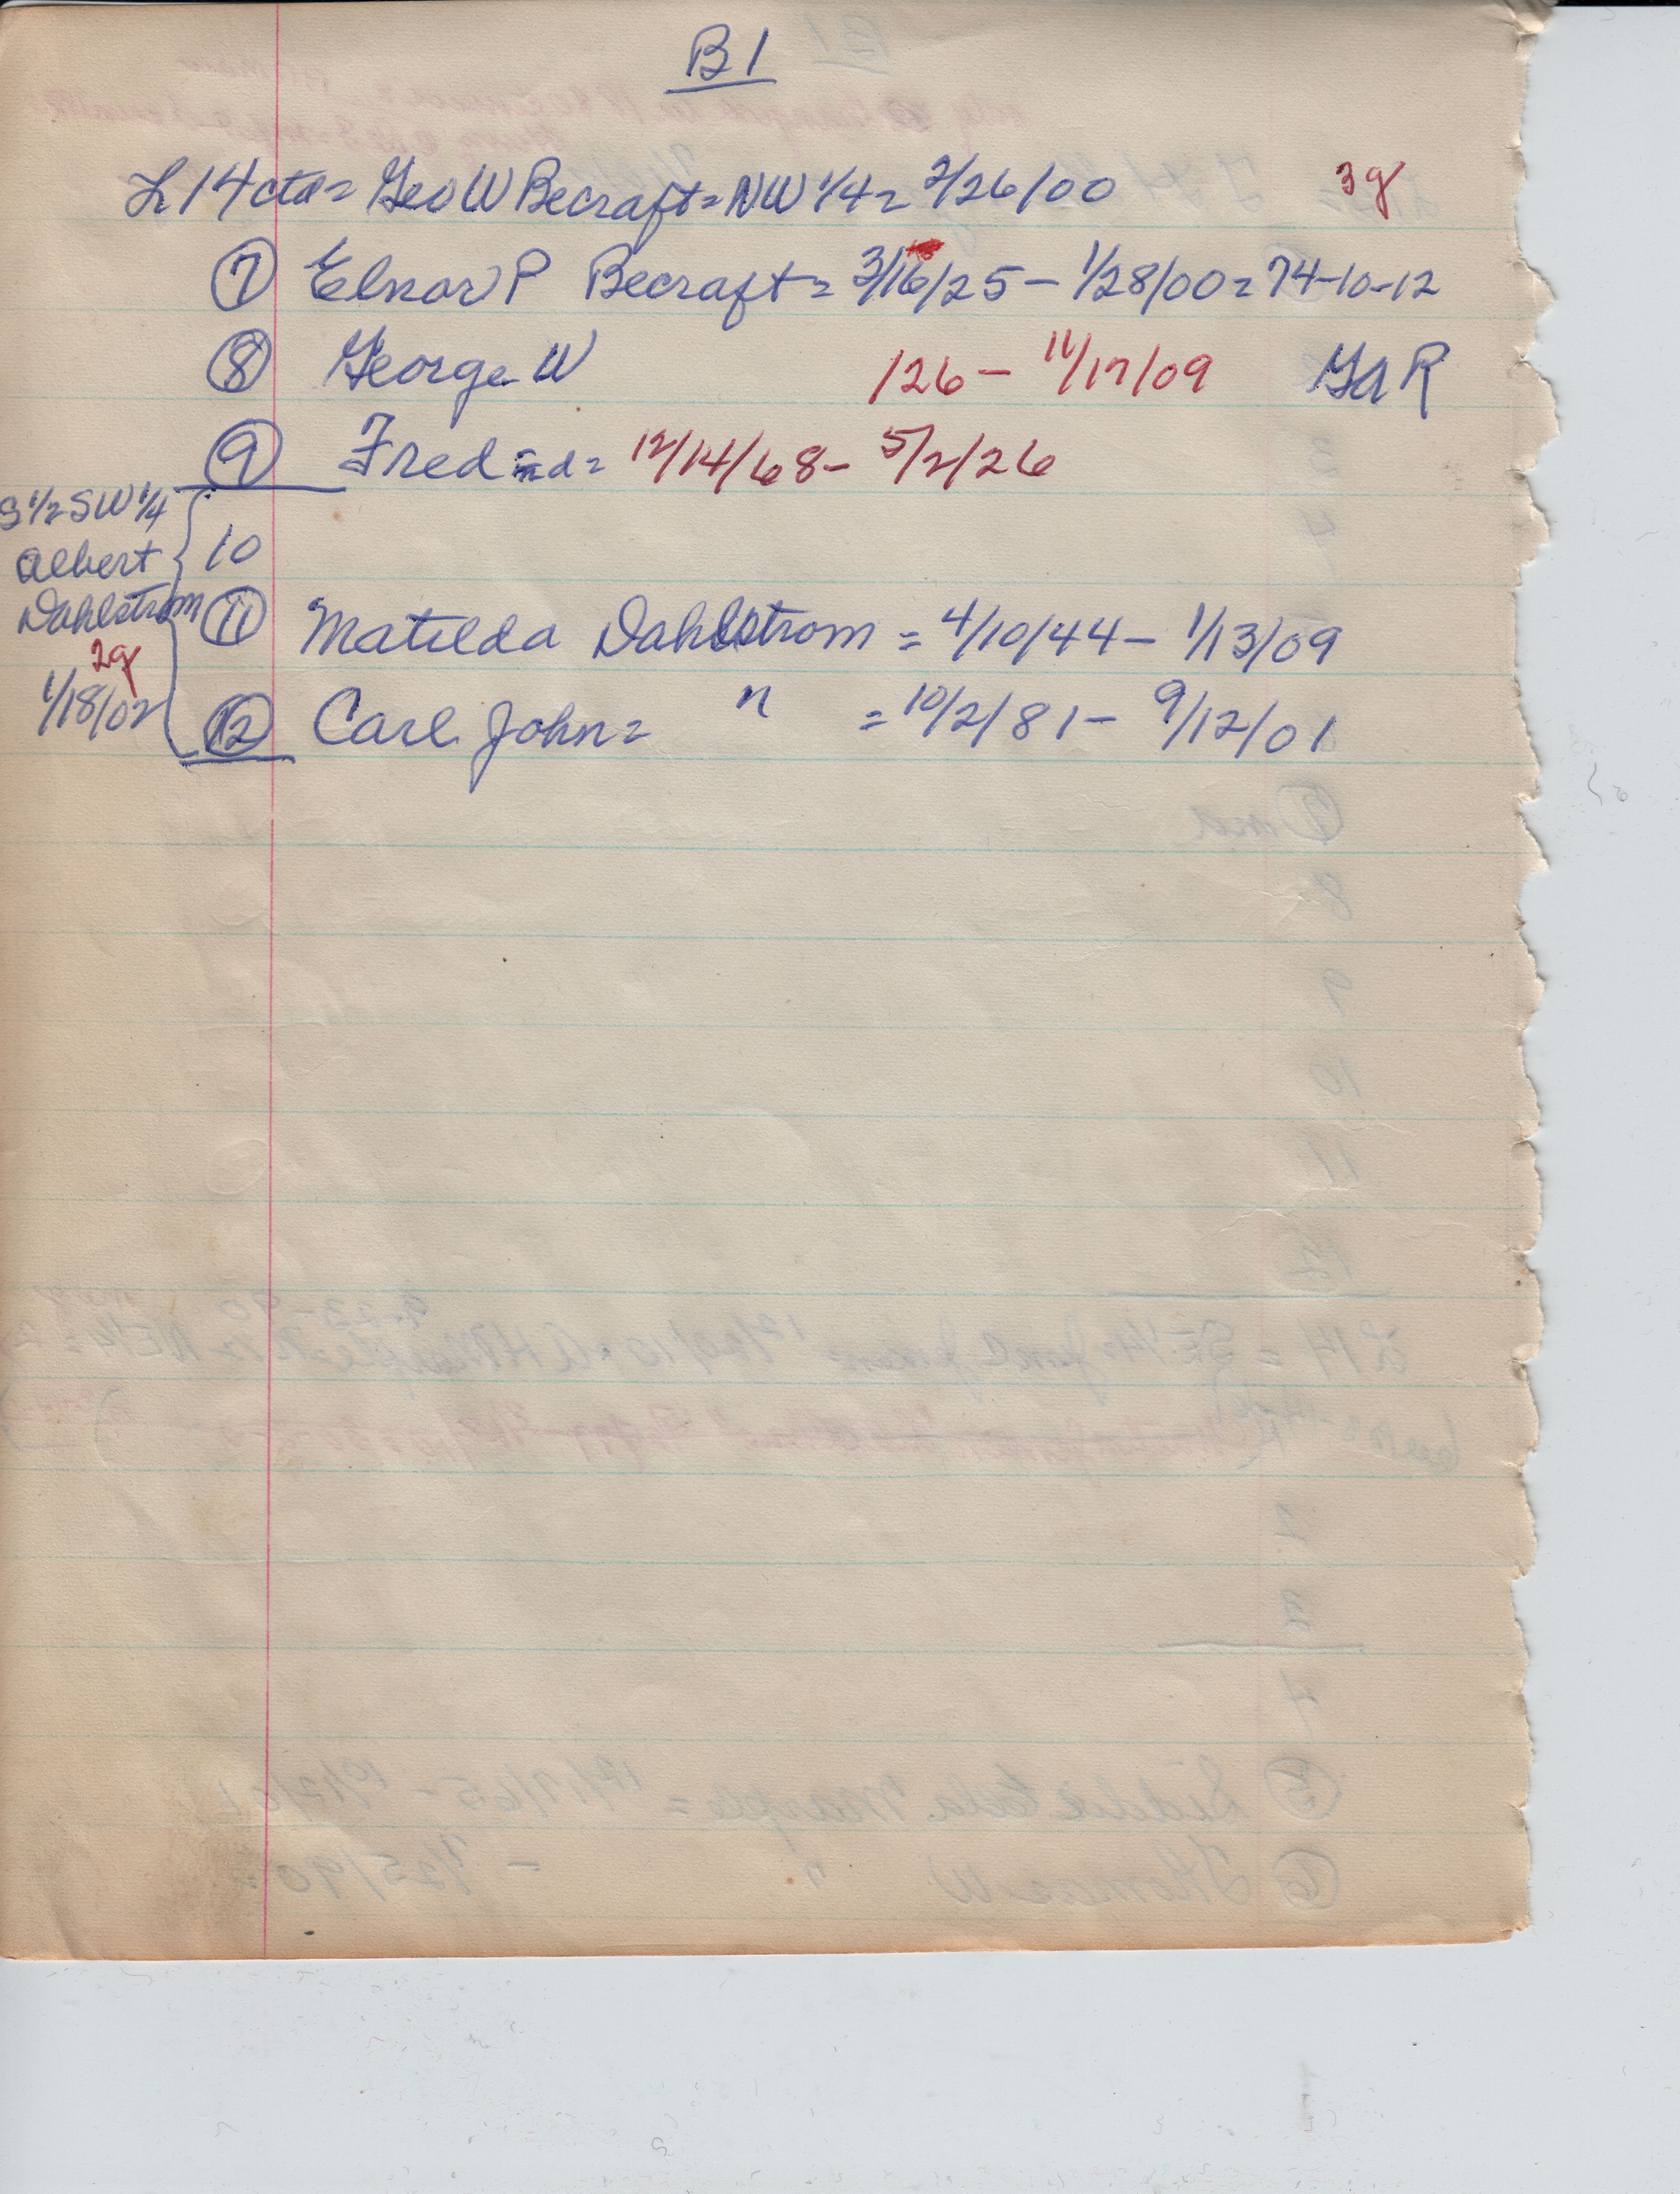 B1
L14ctd = Geo W Becraft = NW 1/4 = 2/26/00 3g
7 Elnor P Becraft = 3/16/25 - 1/28/00 = 74-10-12
8 George W 126 - 11/17/09 GAR
9 Fred = 12/14/68 - 5/2/26
S 1/2 SW 1/4
Albert
Dahlstrom
2g
1/18/02
10
11 Matilda Dahlstrom = 4/10/44 - 1/13/09
12 Carl John = " = 10/2/81 - 9/12/01